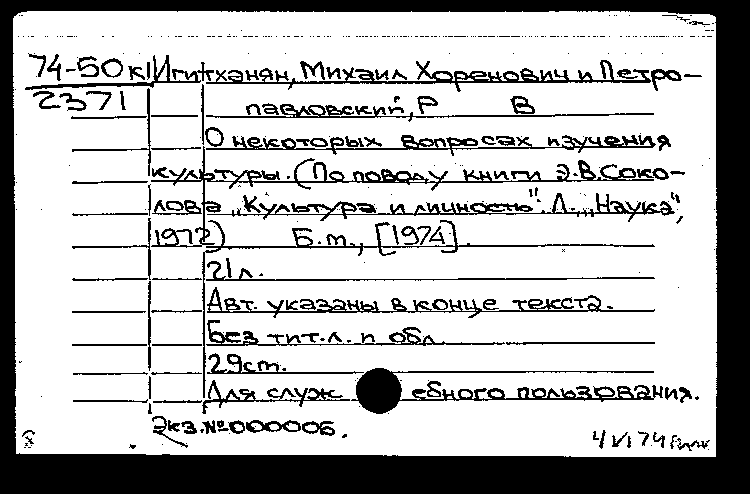 74-50к Игитханян, Михаил Хоренович и Петро-
2371 павловский, Р В
О некоторых вопросах изучения
культуры. (По поводу книги Э.В.Соко-
лова „Культура и личность". Л., „Наука",
1972). Б.м., [1974].
21л.
Авт. указаны в конце текста.
Без тит.л. и обл.
29см.
Для служебного пользования.
Экз.№000006.
8 4 VI 74